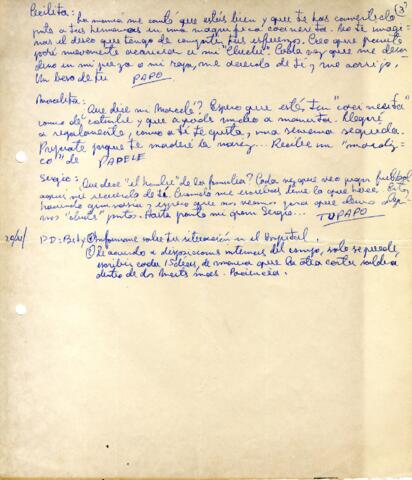 Cecilita: (3)
La mamá me contó que estás bien y que te has convertido
junto a tus hermanas en una magnífica cocinera. No te imagi-
nas el deseo que tengo de compartir tus esfuerzos. Creo que pronto
podré nuevamente acariciar a mi "Cluclu". Cada vez que me
en mi o mi ropa, me acuerdo de ti y me sonrío.
Un beso de tu PAPO
Marcelita:
Que dice mi Marcelé? Espero que estés tan "cari
como de costumbre y que ayudes mucho a mamita. Llegaré
a regalonearte, como a ti te gusta, una semana seguida.
Prepárate porque te morderé la nariz... Recibe un "mordis-
co" de PAPELE
Sergio: Que dice "el hombre" de la familia? Cada vez que veo jugar fútbol
aquí me recuerdo de ti. Cuando me escribas dime lo que haces. Estoy
haciendo gimnasia y espero que nos veamos para que demos algu-
nos juntos. Hasta pronto mi gran Sergio... TU PAPO
20/XI/ P.D: Bety: ① Infórmame sobre tu situación en el Hospital.
② De acuerdo a disposiciones internas del campo, solo se puede
escribir cada 15 días, de manera que la otra carta saldrá
dentro de dos martes más. Paciencia.